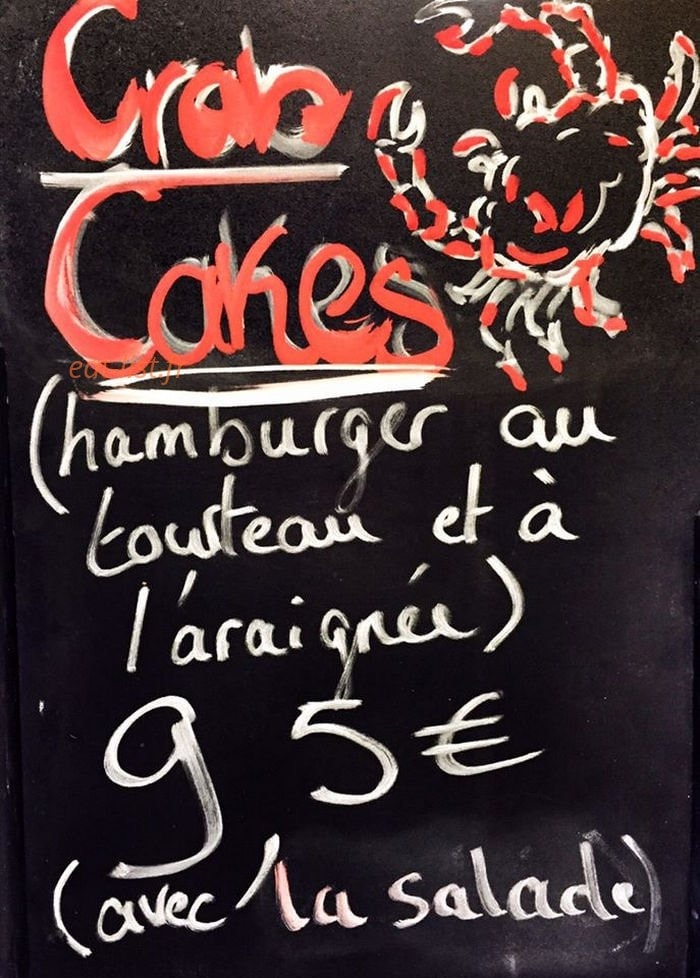 Crab
Cakes
(hamburger au
tourteau et à
l'araignée)
9 5 €
(avec la salade)